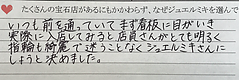 たくさんの宝石店があるにもかかわらず、なぜジュエルミキを選んで
いつも前を通っていてまず看板に目がいき
実際に入店してみると店員さんがとても明るく
指輪も綺麗で迷うことなくジュエルミキさんに
しようと決めました。